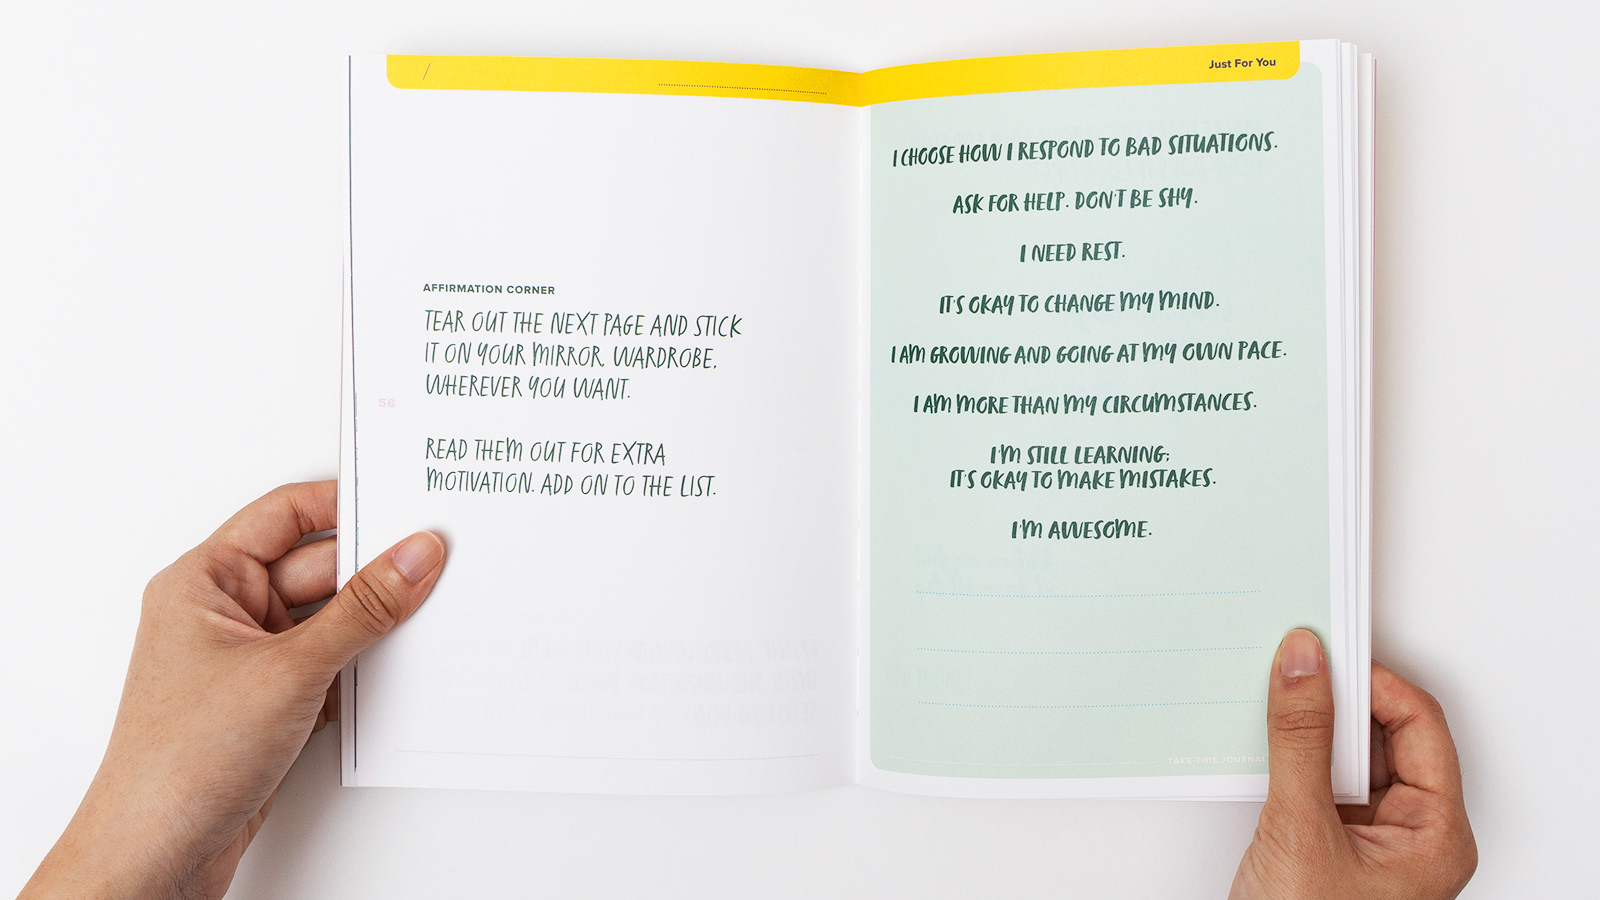 /
Just For You
AFFIRMATION CORNER
TEAR OUT THE NEXT PAGE AND STICK
IT ON YOUR MIRROR, WARDROBE,
WHEREVER YOU WANT.
READ THEM OUT FOR EXTRA
MOTIVATION. ADD ON TO THE LIST.
56
I CHOOSE HOW I RESPOND TO BAD SITUATIONS.
ASK FOR HELP. DON'T BE SHY.
I NEED REST.
IT'S OKAY TO CHANGE MY MIND.
I AM GROWING AND GOING AT MY OWN PACE.
I AM MORE THAN MY CIRCUMSTANCES.
I'M STILL LEARNING;
IT'S OKAY TO MAKE MISTAKES.
I'M AWESOME.
TAKE THIS JOURNAL